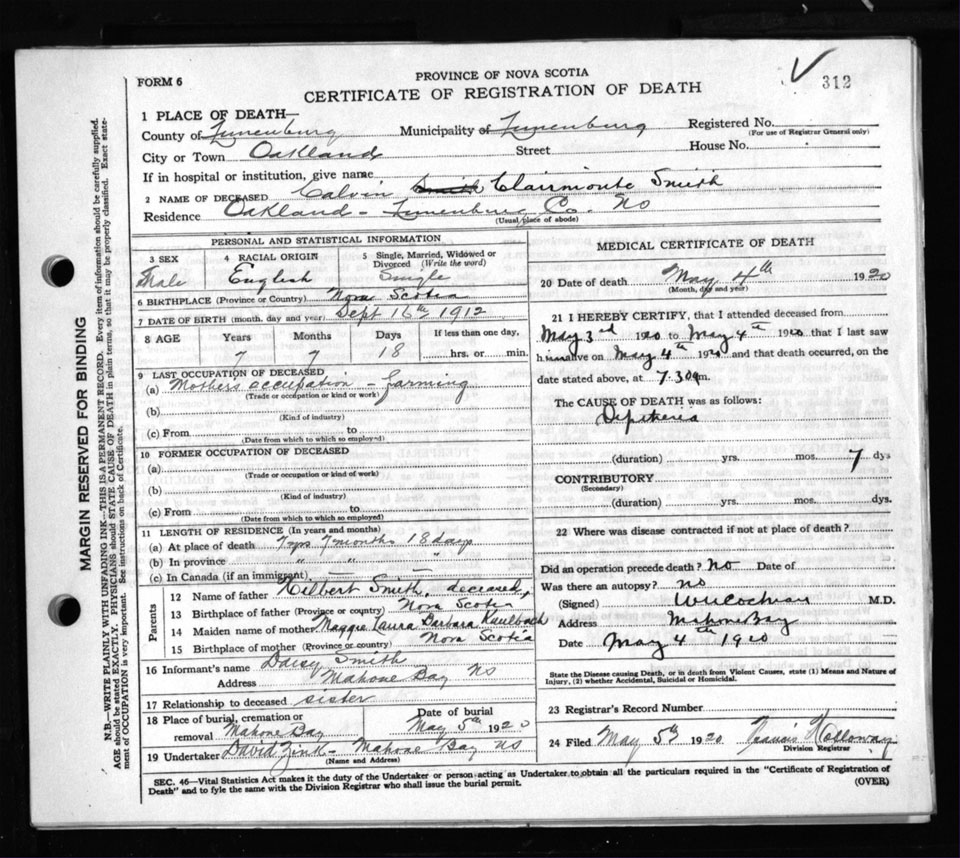 PROVINCE OF NOVA SCOTIA
FORM 6
312
CERTIFICATE OF REGISTRATION OF DEATH
1 PLACE OF DEATH—
County of Lunenburg Municipality of Lunenburg Registered No.
(For use of Registrar General only)
City or Town Oakland Street House No.
If in hospital or institution, give name
2 NAME OF DECEASED Calvin Smith Clairmonte Smith
Residence Oakland - Lunenburg Co. NS
(Usual place of abode)
PERSONAL AND STATISTICAL INFORMATION
3 SEX 4 RACIAL ORIGIN 5 Single, Married, Widowed or Divorced (Write the word)
Male English Single
6 BIRTHPLACE (Province or Country) Nova Scotia
7 DATE OF BIRTH (month, day and year) Sept 16th 1912
8 AGE Years Months Days If less than one day,
7 7 18 hrs. or min.
9 LAST OCCUPATION OF DECEASED
(a) Mothers occupation - farming
(Trade or occupation or kind of work)
(b)
(Kind of industry)
(c) From to
(Date from which to which so employed)
10 FORMER OCCUPATION OF DECEASED
(a)
(Trade or occupation or kind of work)
(b)
(Kind of industry)
(c) From to
(Date from which to which so employed)
11 LENGTH OF RESIDENCE (In years and months)
(a) At place of death 7 yrs 7 months 18 days
(b) In province " " "
(c) In Canada (if an immigrant) — —
Parents
12 Name of father Hilbert Smith, deceased,
13 Birthplace of father (Province or country) Nova Scotia
14 Maiden name of mother Maggie Laura Barbara Kaulback
15 Birthplace of mother (Province or country) Nova Scotia
16 Informant's name Daisy Smith
Address Mahone Bay NS
17 Relationship to deceased sister
18 Place of burial, cremation or removal Mahone Bay Date of burial May 5th 1920
19 Undertaker David Zink - Mahone Bay NS
(Name and Address)
MEDICAL CERTIFICATE OF DEATH
20 Date of death May 4th 1920
(Month, day and year)
21 I HEREBY CERTIFY, that I attended deceased from
May 3rd 1920 to May 4th 1920 that I last saw
him alive on May 4th 1920 and that death occurred, on the
date stated above, at 7.30 m.
The CAUSE OF DEATH was as follows:
Diptheria
(duration) yrs. mos. 7 dys
CONTRIBUTORY
(Secondary)
(duration) yrs. mos. dys.
22 Where was disease contracted if not at place of death?
Did an operation precede death? No Date of
Was there an autopsy? no
(Signed) Cochran M.D.
Address Mahone Bay
Date May 4th 1920
State the Disease causing Death, or in death from Violent Causes, state (1) Means and Nature of
Injury, (2) whether Accidental, Suicidal or Homicidal.
23 Registrar's Record Number
24 Filed May 5th 1920 Francis Holloway
Division Registrar
SEC. 46—Vital Statistics Act makes it the duty of the Undertaker or person acting as Undertaker to obtain all the particulars required in the "Certificate of Registration of
Death" and to fyle the same with the Division Registrar who shall issue the burial permit. (OVER)
MARGIN RESERVED FOR BINDING
N.B.—WRITE PLAINLY WITH UNFADING INK—THIS IS A PERMANENT RECORD. Every item of information should be carefully supplied.
AGE should be stated EXACTLY. PHYSICIANS should STATE CAUSE OF DEATH in plain terms, so that it may be properly classified. Exact state-
ment of OCCUPATION is very important. See instructions on back of Certificate.